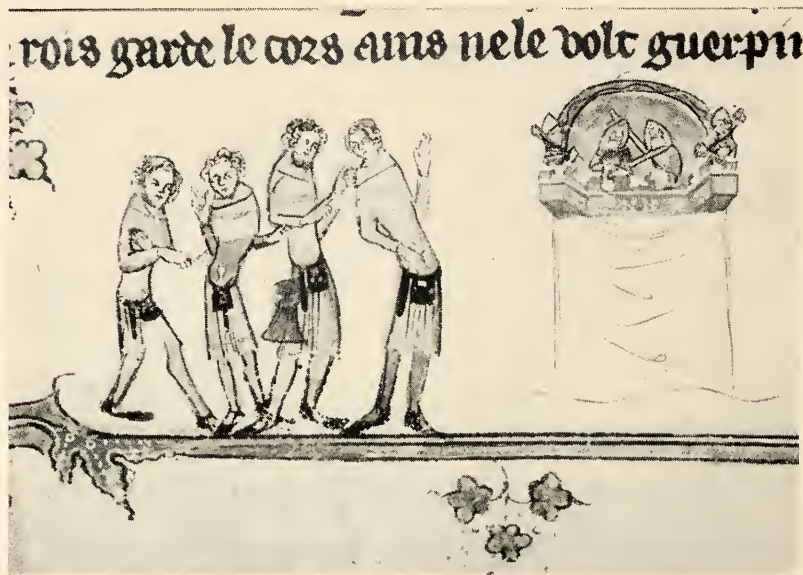 rois garde le cors ains nele volt guerpir